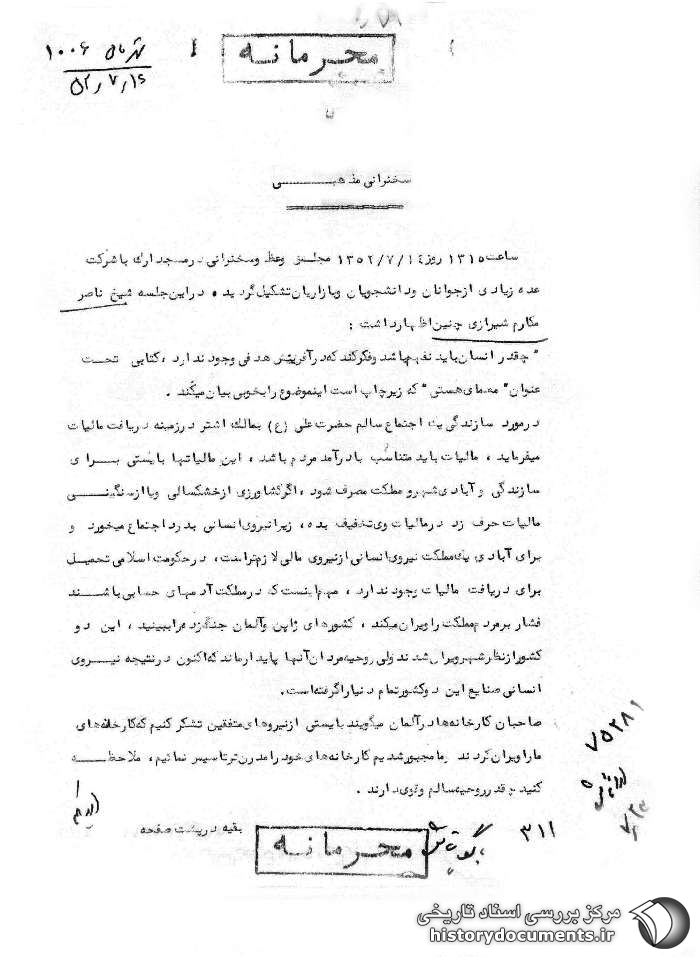 محرمانه
۱۰۰۶
۵۲٫۷٫۱۶
سخنرانی مذهبی
ساعت ۱۳۱۵ روز ۱۳۵۲/۷/۱٤ مجلس وعظ وسخنرانی درمسجد ارك باشرکت
عده زیادی ازجوانان ودانشجویان وبازاریان تشکیل گردید ۰ دراین جلسه شیخ ناصر
مکارم شیرازی چنین اظهارداشت :
" چقدر انسان باید نفهم باشد وفکرکند که درآفرینش هدفی وجود ندارد ، کتابی تحت
عنوان " معمای هستی " که زیرچاپ است اینموضوع رابخوبی بیان میکند .
درمورد سازندگی یك اجتماع سالم حضرت علی (ع) بمالك اشتر درزمینه دریافت مالیات
میفرماید ، مالیات باید متناسب بادرآمد مردم باشد ، این مالیاتها بایستی برای
سازندگی وآبادی شهرو مملکت مصرف شود ، اگرکشاورزی ازخشکسالی ویاازسنگینی
مالیات حرف زد درمالیات وی تخفیف بده ، زیرانیروی انسانی بدرد اجتماع میخورد و
برای آبادی یك مملکت نیروی انسانی ازنیروی مالی لازم تراست ، درحکومت اسلامی تحمیل
برای دریافت مالیات وجود ندارد ، مهم اینست که درمملکت آدمهای حسابی باشند
فشار برمردم مملکت راویران میکند ، کشورهای ژاپن وآلمان جنگ زده راببینید ، این دو
کشورازنظرشهرویران شدند ولی روحیه مردان آنها پایدارماند که اکنون درنتیجه نیروی
انسانی صنایع این دوکشورتمام دنیاراگرفته است.
صاحبان کارخانه هادرآلمان میگویند بایستی ازنیروهای متفقین تشکر کنیم که کارخانه های
ماراویران کردند وما مجبورشدیم کارخانه های خود رامدرن ترتاسیس نمائیم ، ملاحظه
کنید چقدر روحیه سالم وقوی دارند .
۷۵۲۸۱
بقیه درپشت صفحه
۳۱۱
محرمانه
مرکز بررسی اسناد تاریخی
historydocuments.ir